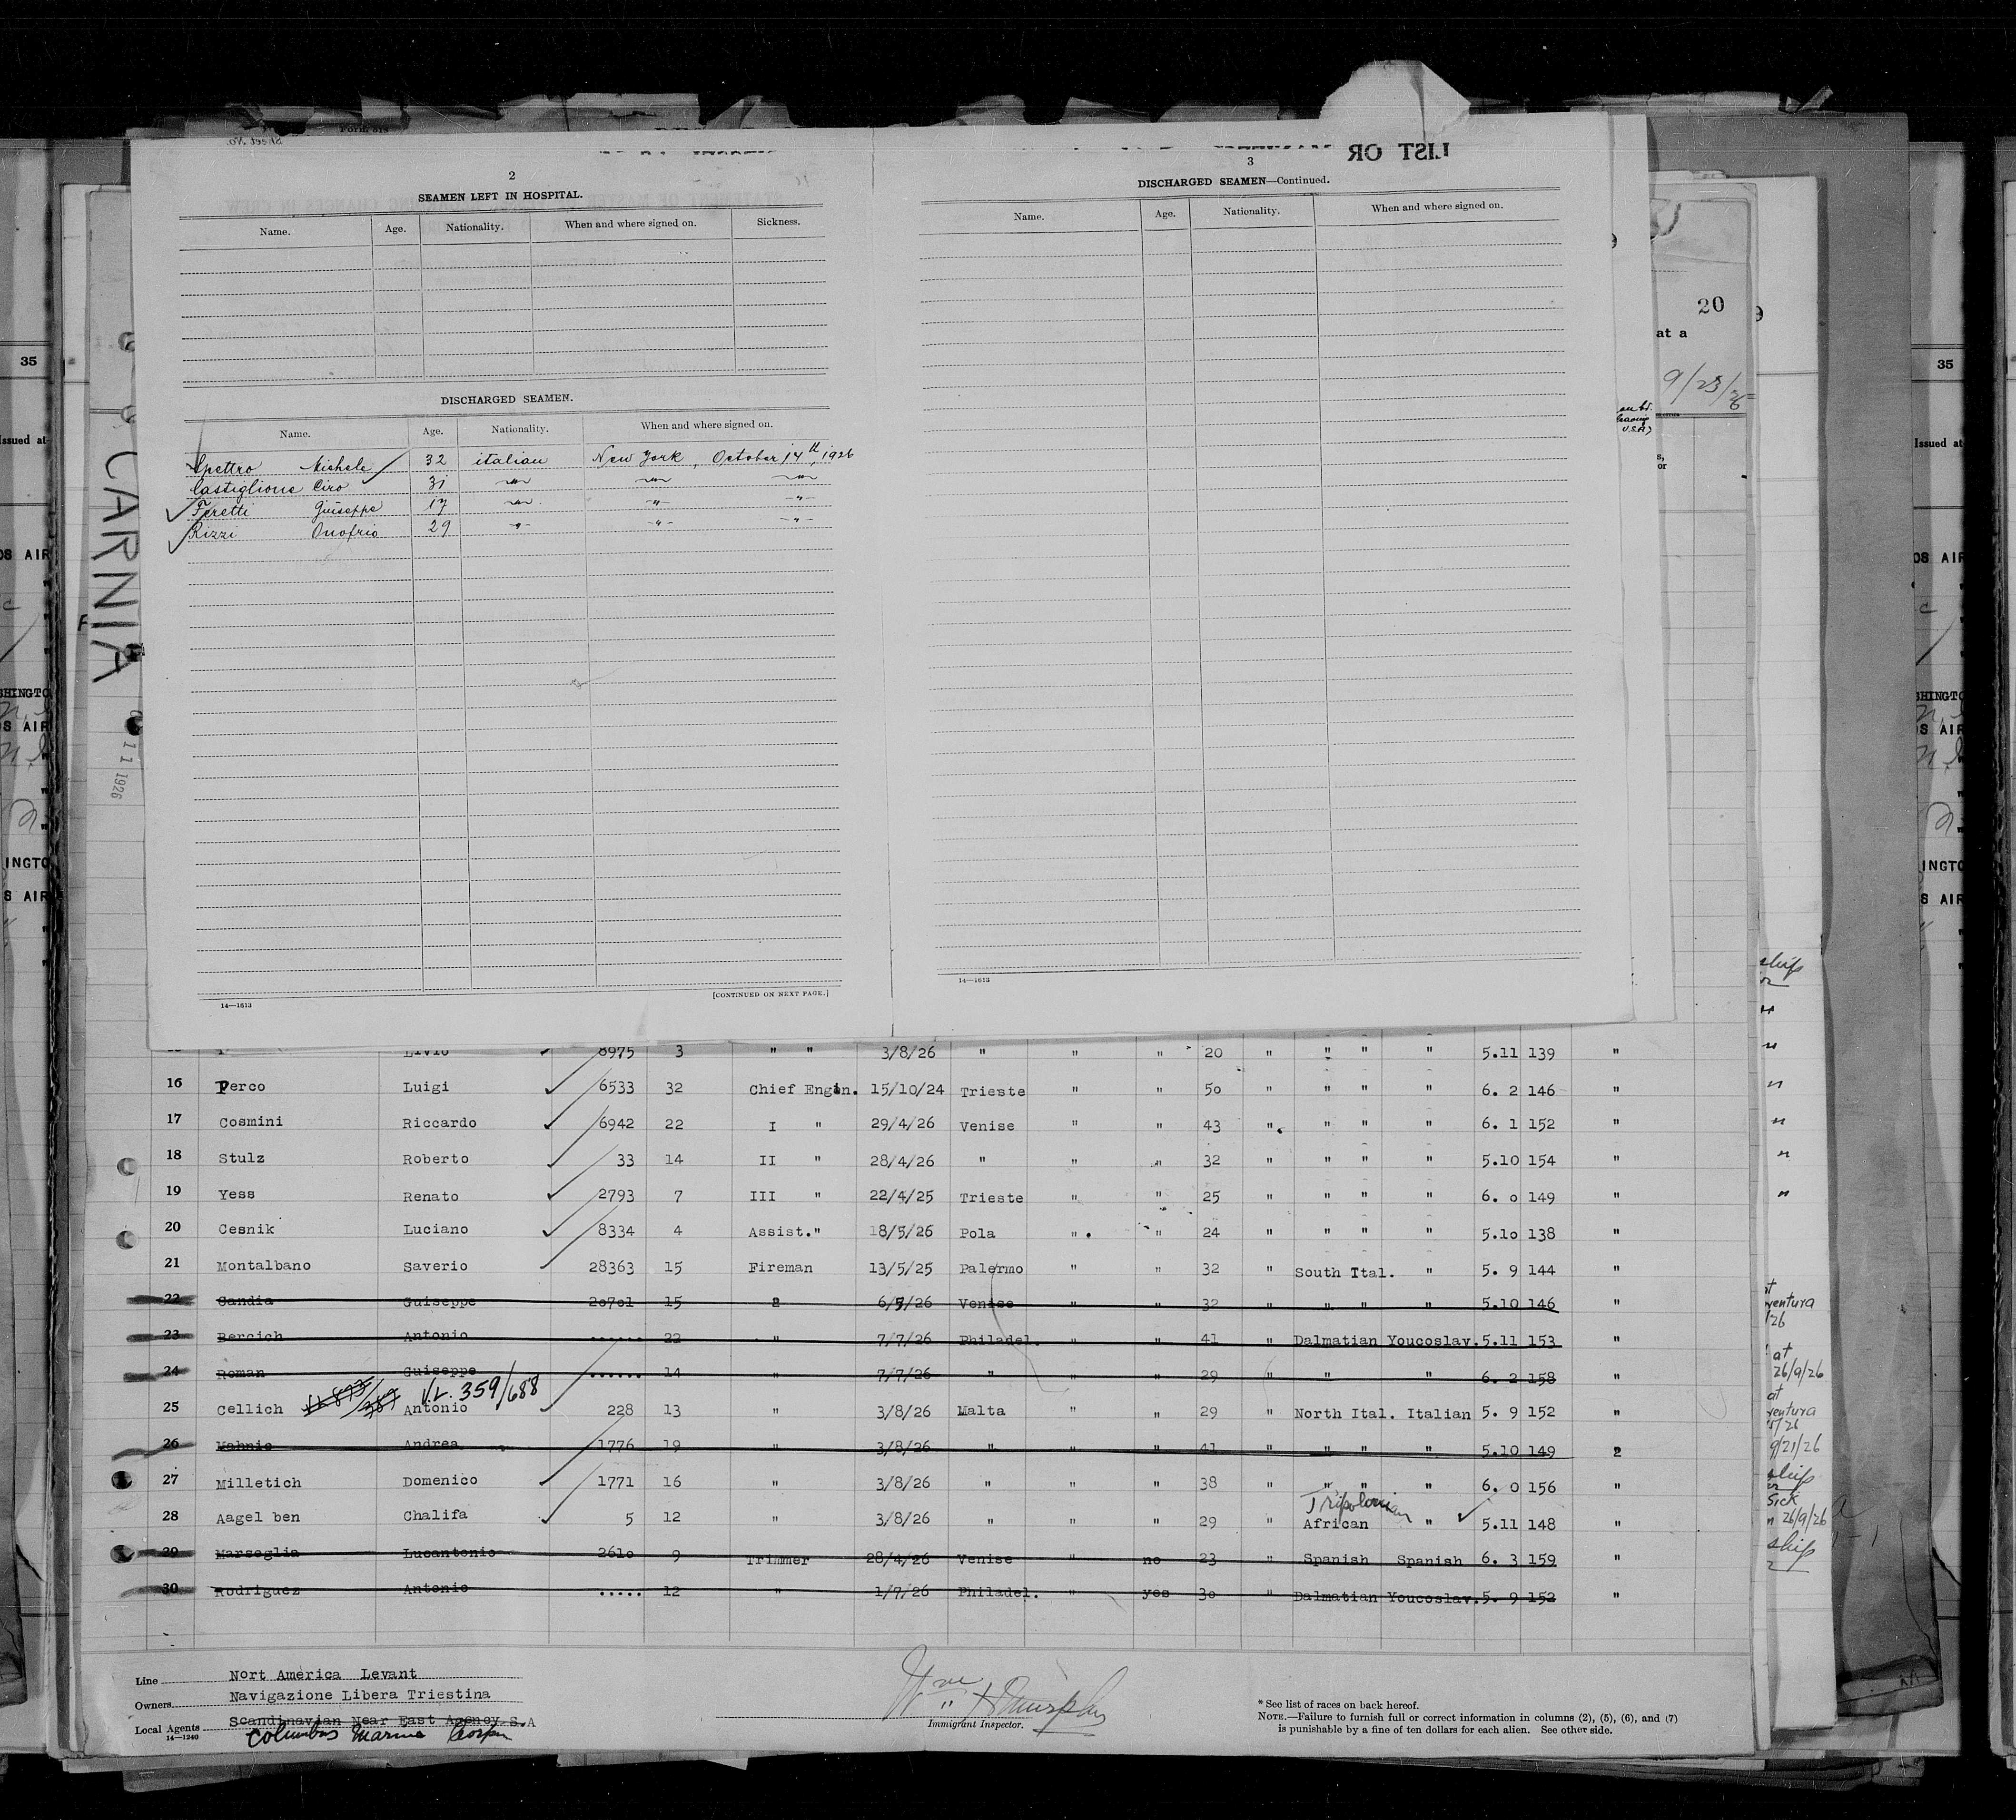 2
SEAMEN LEFT IN HOSPITAL.
Name. Age. Nationality. When and where signed on. Sickness.
DISCHARGED SEAMEN.
Name. Age. Nationality. When and where signed on.
Michele 32 italian New York, October 14th, 1926
Castiglione Ciro 31 " " "
Feretti Guiseppe 17 " " "
Rizzi Onofrio 29 " " "
14—1613 [CONTINUED ON NEXT PAGE.]
LIST OR
3
DISCHARGED SEAMEN—Continued.
Name. Age. Nationality. When and where signed on.
14—1613
CARNIA
11 1926
35
Issued at
20
at a
9/23/26
35
Issued at
Livio 8975 3 " " 3/8/26 " " " 20 " " " " 5.11 139 "
16 Perco Luigi 6533 32 Chief Engin. 15/10/24 Trieste " " 50 " " " " 6. 2 146 "
17 Cosmini Riccardo 6942 22 I " 29/4/26 Venise " " 43 " " " " 6. 1 152 "
18 Stulz Roberto 33 14 II " 28/4/26 " " " 32 " " " " 5.10 154 "
19 Yess Renato 2793 7 III " 22/4/25 Trieste " " 25 " " " " 6. 0 149 "
20 Cesnik Luciano 8334 4 Assist." 18/5/26 Pola " " 24 " " " " 5.10 138 "
21 Montalbano Saverio 28363 15 Fireman 13/5/25 Palermo " " 32 " South Ital. " 5. 9 144 "
22 Candia Guiseppe 20701 15 2 6/5/26 Venise " " 32 " " " " 5.10 146 "
23 Bercich Antonio ...... 22 " 7/7/26 Philadel. " " 41 " Dalmatian Youcoslav. 5.11 153 "
24 Roman Guiseppe ...... 14 " 7/7/26 " " " 29 " " " 6. 2 158 "
V.L. 359/688
25 Cellich Antonio 228 13 " 3/8/26 Malta " " 29 " North Ital. Italian 5. 9 152 "
26 Mahnic Andrea 1776 19 " 3/8/26 " " " 41 " " " " 5.10 149 2
27 Milletich Domenico 1771 16 " 3/8/26 " " " 38 " " " " 6. 0 156 "
Tripolonian
28 Aagel ben Chalifa 5 12 " 3/8/26 " " " 29 " African " 5.11 148 "
29 Marseglia Lucantonio 2610 9 Trimmer 28/4/26 Venise " no 23 " Spanish Spanish 6. 3 159 "
30 Rodriguez Antonio ..... 12 " 1/7/26 Philadel. " yes 30 " Dalmatian Youcoslav. 5. 9 152 "
Line Nort America Levant
Owners Navigazione Libera Triestina
Local Agents Scandinavian Near East Agency S.A
14—1240 Columbus Marine Corpn
Immigrant Inspector.
* See list of races on back hereof.
NOTE.—Failure to furnish full or correct information in columns (2), (5), (6), and (7)
is punishable by a fine of ten dollars for each alien. See other side.
ship
ventura
at
26/9/26
at
ventura
9/21/26
ship
Sick
26/9/26
ship